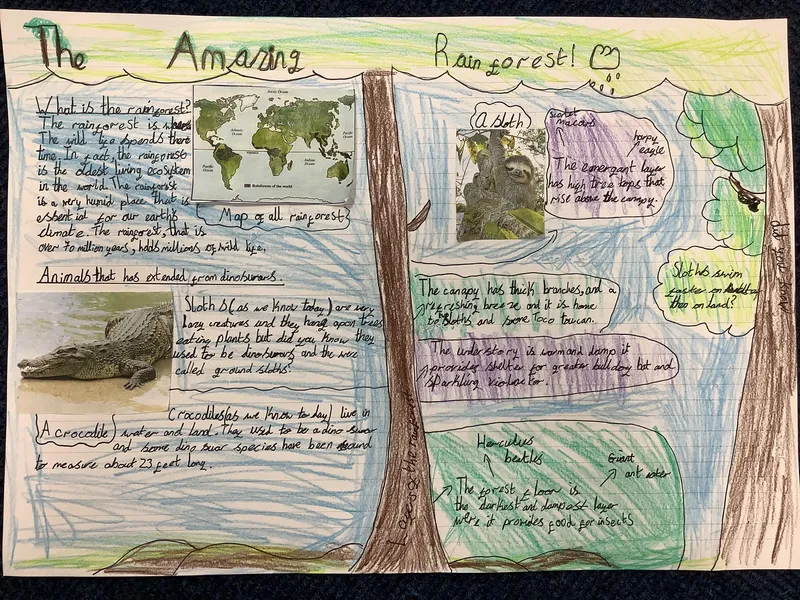 The Amazing Rainforest!
What is the rainforest?
The rainforest is where
The wild life spends there
time. In fact, the rainforest
is the oldest living ecosystem
in the world. The rainforest
is a very humid place that is
essential for our earth's
climate. The rainforest, that is
over 70 million years, holds millions of wild life.
Arctic Ocean
Atlantic Ocean
Pacific Ocean
Pacific Ocean
Indian Ocean
Rainforests of the world
Map of all rainforest
Animals that has extended from dinosuars.
Sloths (as we know today) are very
lazy creatures and they hang apon trees
eating plants but did you know they
used to be dinosuars and the were
called ground sloths.
Crocodiles (as we know today) live in
(A crocodile) water and land. They used to be a dino suar
and some dino suar species have been found
to measure about 23 feet long.
Layers of the
A sloth
scarlet
macaws
harpy
eagle
The emergant layer
has high tree tops that
rise above the canopy.
The canapy has thick branches, and a
refreshing breeze and it is home
to the sloths and some Toco toucan.
The understory is warm and damp it
provides shelter for greater bulldog bat and
sparkling violacter.
Herculus
beetles
Giant
ant eater
The forest floor is
the darkest and dampest layer
were it provides food for insects
did you know
Sloths swim
faster on
than on land?